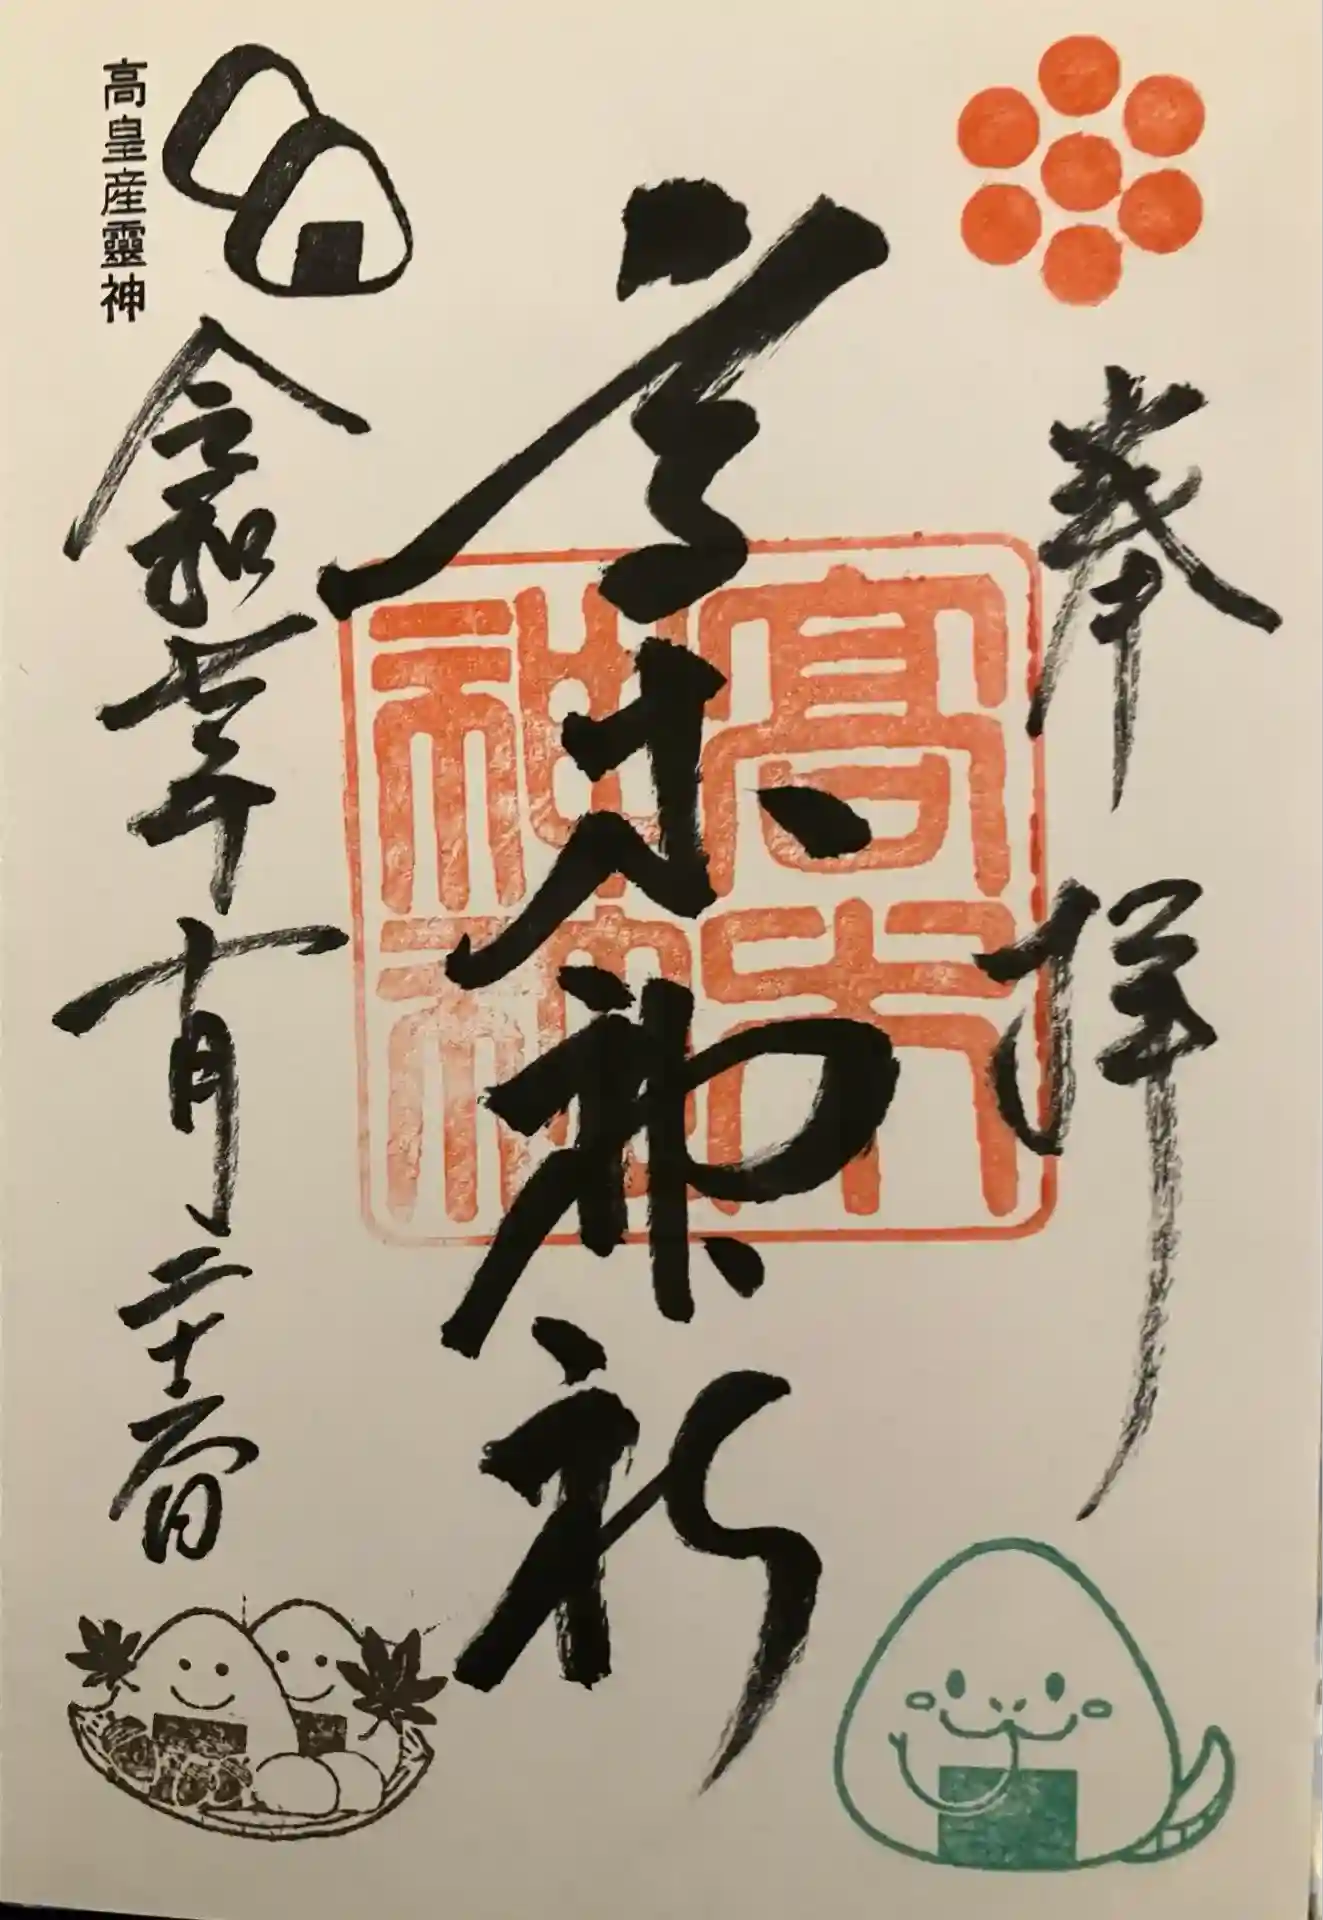 奉拝
高木神社
高木
神
高皇産靈神
令和七年十月二十六日